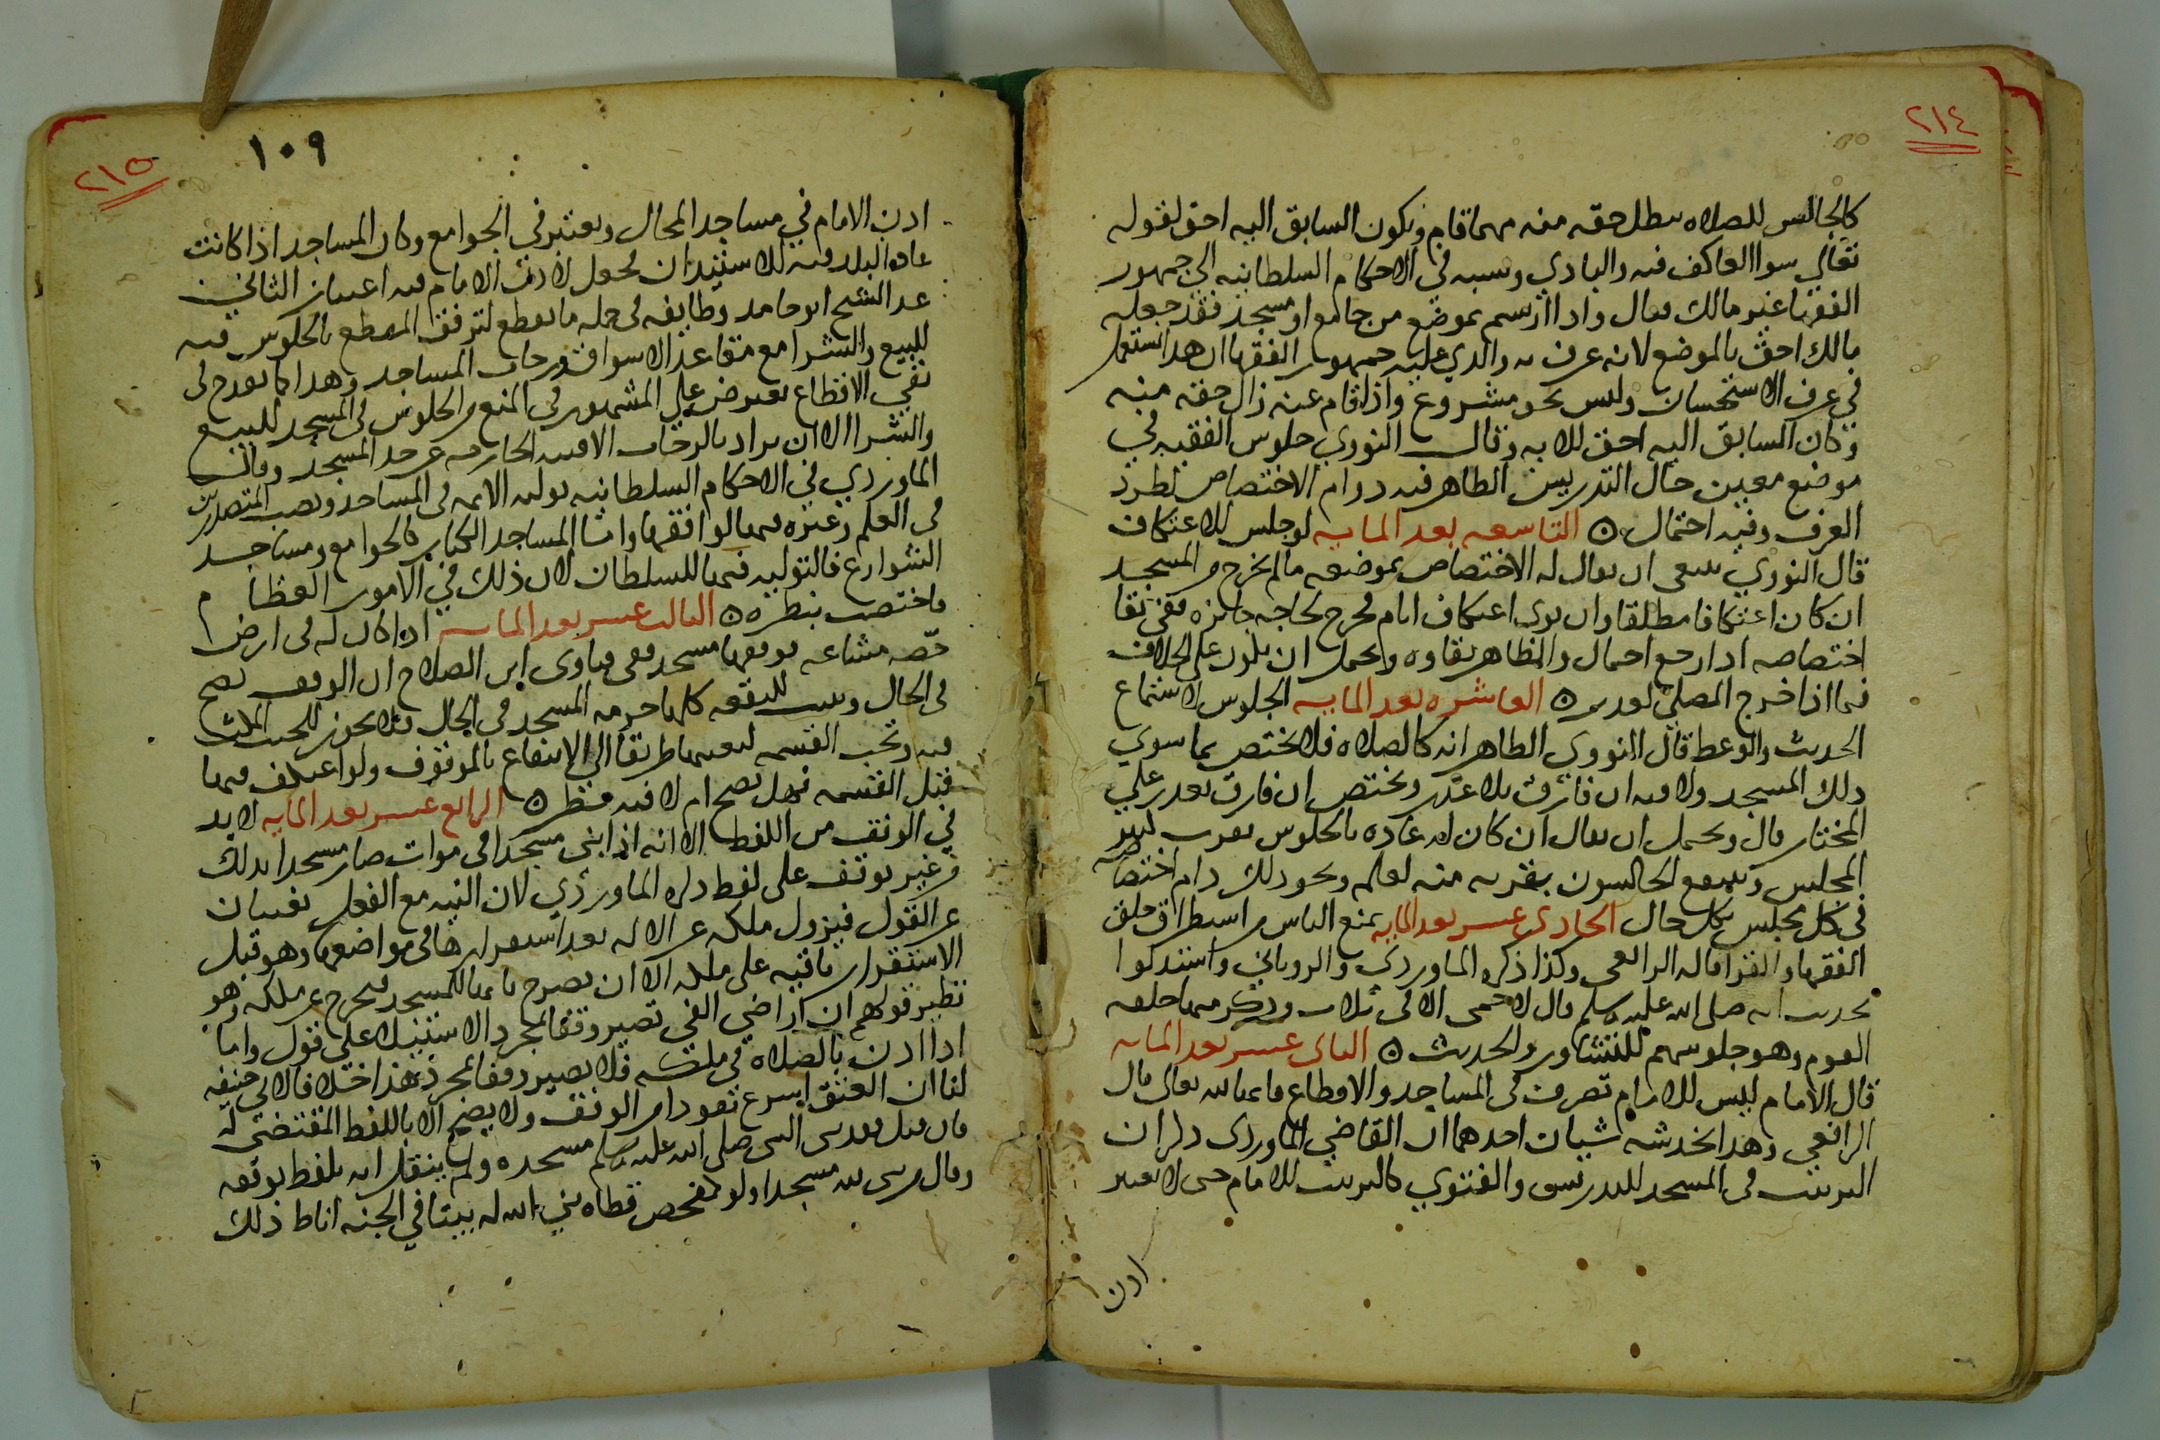 ٢١٤
كالجالس للصلاه يبطل حقه منه مهما قام ويكون السابق اليه احق لقوله
تعالي سوا العاكف فيه والبادي ونسبه في الاحكام السلطانيه الي جمهور
الفقها غير مالك فقال واذا ارتسم بموضع من جامع او مسجد فقد جعله
مالك احق بالموضع لانه عرف به والذي عليه جمهور الفقها ان هذا استعمل
في عرف الاستحسان وليس بحق مشروع واذا قام عنه زال حقه منه
وكان السابق اليه احق للايه وقال النووي جلوس الفقيه في
موضع معين حال التدريس الظاهر فيه دوام الاختصاص لطرد
العرف وفيه احتمال ٥ التاسعه بعد المايه لو جلس للاعتكاف
قال النووي ينبغي ان يقال له الاختصاص بموضعه ما لم يخرج من المسجد
ان كان اعتكافا مطلقا وان نوي اعتكاف ايام فخرج لحاجه جايزه ففي بقا
اختصاصه اذا رجع احتمال والظاهر بقاوه ويحتمل ان يكون علي الخلاف
فيما اذا خرج المصلي لعذر ٥ العاشره بعد المايه الجلوس لاستماع
الحديث والوعظ قال النووي الظاهر انه كالصلاه فلا يختص بما سوي
ذلك المسجد ولا فيه ان فارق بلا عذر ويختص ان فارق بعذر علي
المختار قال ويحتمل ان يقال ان كان له عاده بالجلوس بقرب كبير
المجلس وينتفع الجالسون بقربه منه لعلمه ونحو ذلك دام اختصاصه
في كل مجلس بكل حال الحادي عشر بعد المايه يمنع الناس من استطراق حلق
الفقها والقرا قاله الرافعي وكذا ذكره الماوردي والروياني واستدلوا
بحديث انه صلي الله عليه وسلم قال لا حمي الا في ثلاث وذكر منها حلقه
القوم وهو جلوسهم للتشاور والحديث ٥ الثاني عشر بعد المايه
قال الامام ليس للامام تصرف في المساجد والاقطاع فانها لله تعالي قال
الرافعي وهذا يخدشه شيان احدهما ان القاضي الماوردي ذكر ان
الترتيب في المسجد للتدريس والفتوي كالترتيب للامام حتي لا يعتبر
اذن
٢١٥
١٠٩
اذن الامام في مساجد المحال ويعتبر في الجوامع وكبار المساجد اذا كانت
عاده البلد فيه الاستيذان فجعل لاذن الامام فيه اعتبارا الثاني
عد الشيخ ابو حامد وطايفه في جمله ما يقطع لترفق المقطع بالجلوس فيه
للبيع والشرا مع مقاعد الاسواق ورحاب المساجد وهذا كما يقدح في
نفي الاقطاع يعترض علي المشهور في المنع من الجلوس في المسجد للبيع
والشرا الا ان يراد بالرحاب الافنيه الخارجه عن حد المسجد وقال
الماوردي في الاحكام السلطانيه توليه الايمه في المساجد ونصب المتصدرين
في العلم وغيره فيها لواقفها واما المساجد الكبار كالجوامع ومساجد
الشوارع فالتوليه فيها للسلطان لان ذلك في الامور العظام
فاختصت بنظره ٥ الثالث عشر بعد المايه اذا كان له في ارض
حصه مشاعه فوقفها مسجدا ففي فتاوي ابن الصلاح ان الوقف يصح
في الحال وتثبت للبقعه كلها حرمه المسجد في الحال فلا يجوز للجنب المكث
فيه وتجب القسمه لتعينها طريقا الي الانتفاع بالموقوف ولو اعتكف فيها
قبل القسمه فهل يصح ام لا فيه نظر ٥ الرابع عشر بعد المايه لا بد
في الوقف من اللفظ الا انه اذا بني مسجدا في موات صار مسجدا بذلك
من غير توقف علي لفظ ذكره الماوردي لان النيه مع الفعل يغنيان
عن القول فيزول ملكه عن الاله بعد استقرارها في مواضعها وهو قبل
الاستقرار باقيه علي ملكه الا ان يصرح بانها للمسجد فتخرج عن ملكه وهو
نظير قولهم ان اراضي الفي تصير وقفا بمجرد الاستيلا علي قول واما
اذا اذن بالصلاه في ملكه فلا يصير وقفا بمجرد هذا خلافا لابي حنيفه
لنا ان العتق اسرع نفوذا من الوقف ولا يصح الا باللفظ المقتضي له
فان قيل فقد بني النبي صلي الله عليه وسلم مسجده ولم ينقل انه تلفظ بوقفه
وقال من بني لله مسجدا ولو كمفحص قطاه بني الله له بيتا في الجنه اناط ذلك